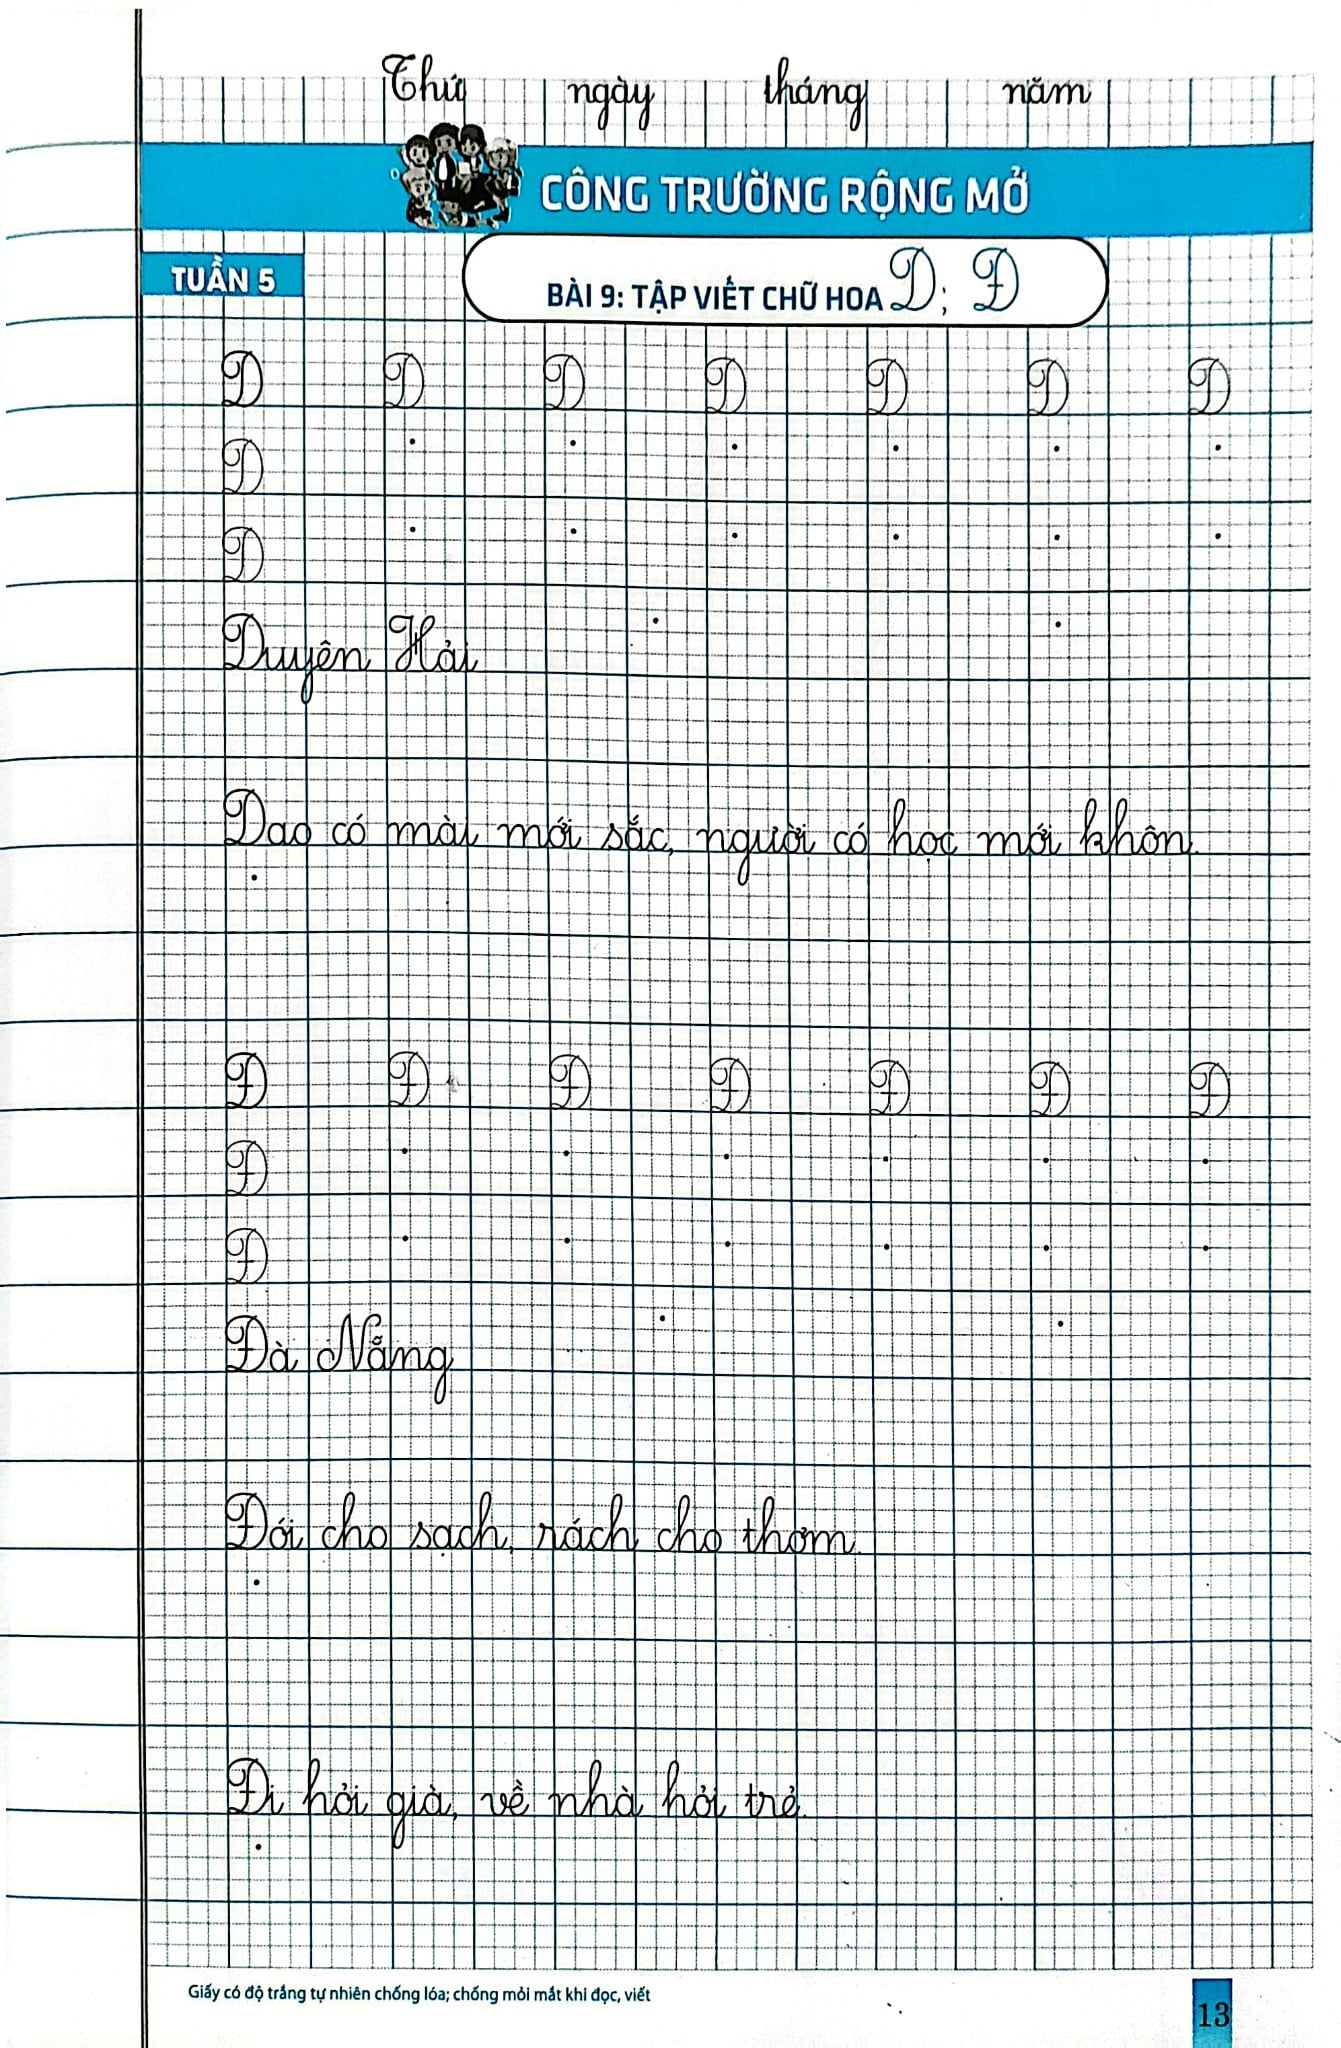 Thứ ngày tháng năm
CÔNG TRƯỜNG RỘNG MỞ
TUẦN 5
BÀI 9: TẬP VIẾT CHỮ HOA D; Đ
D D D D D D D
D
D
Duyên Hải
Dao có mài mới sắc, người có học mới khôn.
Đ Đ Đ Đ Đ Đ Đ
Đ
Đ
Đà Nẵng
Đói cho sạch, rách cho thơm.
Đi hỏi già, về nhà hỏi trẻ.
Giấy có độ trắng tự nhiên chống lóa; chống mỏi mắt khi đọc, viết
13